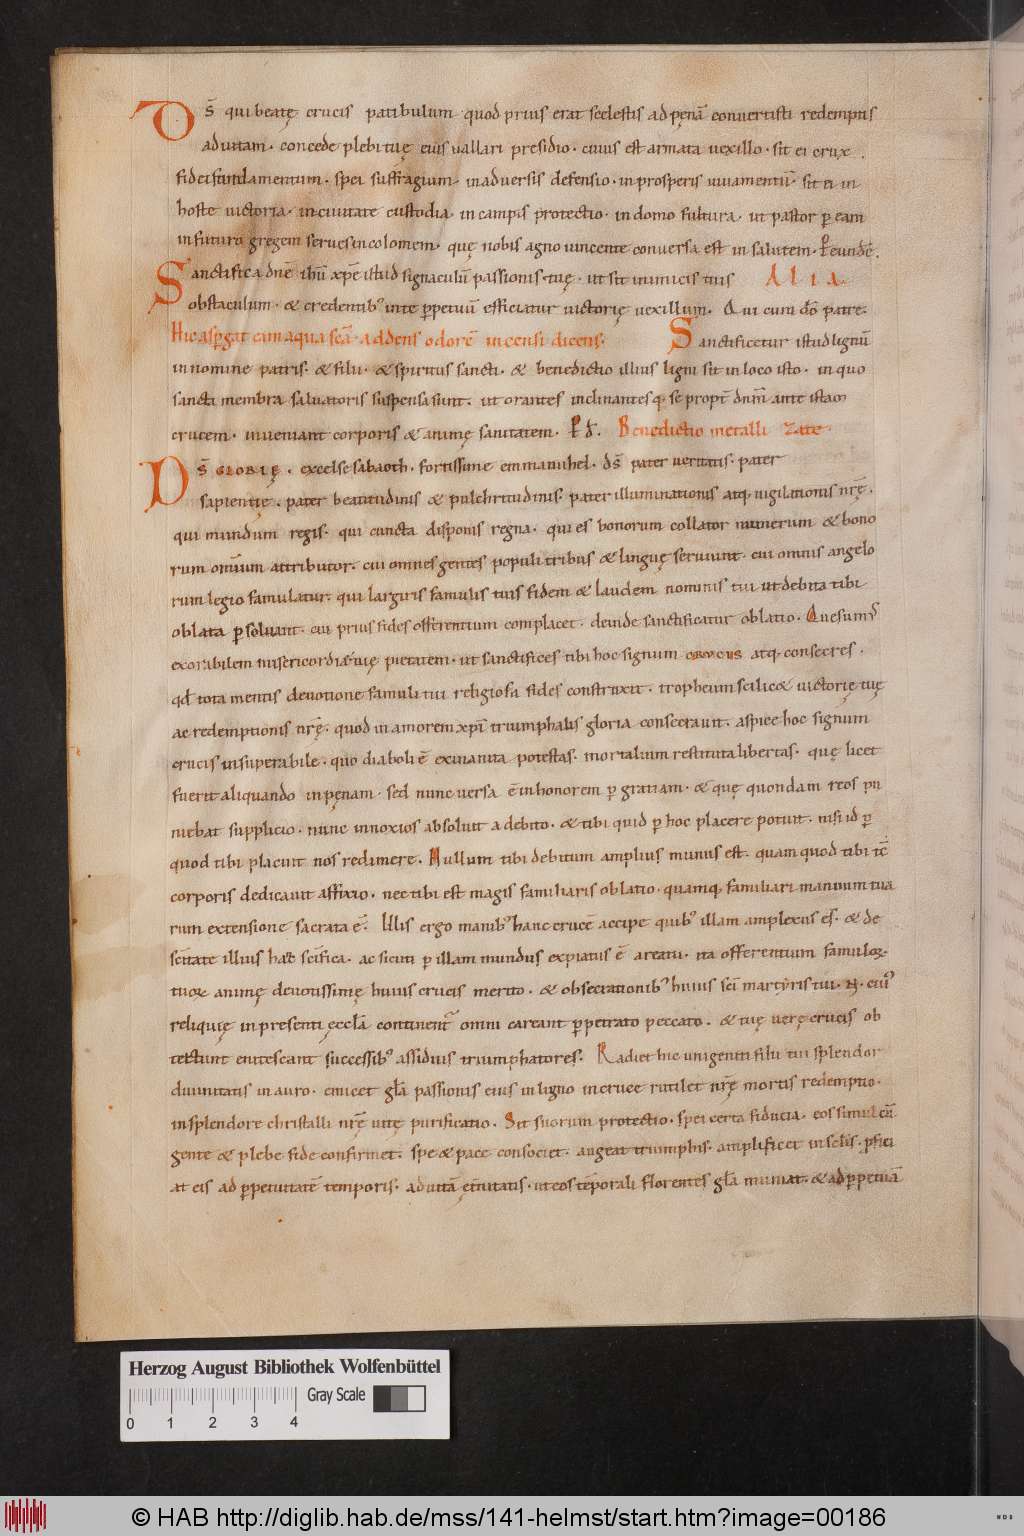 D s̄ qui beatę crucis patibulum quod prius erat scelestis ad pęnā conuertisti redemptis
ad uitam· concede plebi tuę eius uallari presidio· cuius est armata uexillo· sit ei crux·
fidei fundamentum· spei suffragium· in aduersis defensio· in prosperis iuuamentū· sit ei in
hoste uictoria· in ciuitate custodia· in campis protectio· in domo fultura· ut pastor ꝑ eam
in futuro gregem serues incolomem· quę nobis agno uincente conuersa est in salutem· P eundē·
Sanctifica dnē ihū xp̄e istud signaculū passionis tuę· ut sit inimicis tuis ALIA·
obstaculum· & credentib; in te ꝑpetuū efficiatur uictorię uexillum· Qui cum dō patre·
Hic aspgat eam aqua scā addens odorē incensi dicens· Sanctificetur istud lignū
in nomine patris· & filii· & spiritus sancti· & benedictio illius ligni sit in loco isto· in quo
sancta membra saluatoris suspensa sunt· ut orantes inclinantesq; se propt̄ dn̄m ante istam
crucem· inueniant corporis & animę sanitatem· P đ. Benedictio metalli
D s̄ GLORIĘ· excelse sabaoth· fortissime emmanuhel· ds̄ pater ueritatis· pater
sapientię· pater beatitudinis & pulchritudinis· pater illuminationis atq; uigilationis nr̄ę·
qui mundum regis· qui cuncta disponis regna· qui es bonorum collator munerum & bono
rum omīum attributor· cui omnes gentes populi tribus & linguę seruiunt· cui omnis angelo
rum legio famulatur· qui largiris famulis tuis fidem & laudem nominis tui ut debita tibi
oblata ꝑsoluant· cui prius fides offerentium complacet· deinde sanctificatur oblatio· Quesum;
exorabilem misericordiæ tuię pietatem· ut sanctifices tibi hoc signum CRVCIS atq; consecres·
qđ tota mentis deuotione famuli tui religiosa fides construxit· tropheum scilic& uictorię tuę
ac redemptionis nr̄ę· quod in amorem xp̄i triumphalis gloria consecrauit· aspice hoc signum
crucis insuperabile· quo diaboli ē exinanita potestas· mortalium restituta libertas· quę licet
fuerit aliquando in pęnam· sed nunc uersa ē in honorem ꝑ gratiam· & quę quondam reos pu
niebat supplicio· nunc innoxios absoluit a debito· & tibi quid ꝑ hoc placere potuit· nisi id ꝑ
quod tibi placuit nos redimere· Nullum tibi debitum amplius munus est· quam quod tibi tc̄
corporis dedicauit affixio· nec tibi est magis familiaris oblatio· quamq; familiari manuum tua
rum extensione sacrata ē· Illis ergo manib; hanc crucē accipe quib; illam amplexus es· & de
sc̄itate illius hanc sc̄ifica· ac sicuti ꝑ illam mundus expiatus ē a reatu· ita offerentium famuloꝝ·
tuoꝝ animę deuotissimę huius crucis merito· & obsecrationib; huius sc̄i martyris tui· N· cui;
reliquię in presenti ęccl̄a continent̄ omni careant ꝑpetrato peccato· & tuę uerę crucis ob
tectunt enitescant successib; assiduis triumphatores· Radiet hic unigeniti filii tui splendor
diuinitatis in auro· emicet gl̄a passionis eius in ligno in cruce rutilet nr̄ę mortis redemptio·
in splendore christalli nr̄ę uitę purificatio· Sit suorum protectio· spei certa fiducia· eos simul cū
gente & plebe fide confirmet· spe & pace consociet· augeat triumphis· amplificet in sclīs· ꝓfici
at eis ad ꝑpetuitatē temporis· ad uitā ęt̄nitatis· ut eos tēporali florentes gl̄a muniat· & ad ꝑpetuā
Herzog August Bibliothek Wolfenbüttel
Gray Scale
0 1 2 3 4
© HAB http://diglib.hab.de/mss/141-helmst/start.htm?image=00186